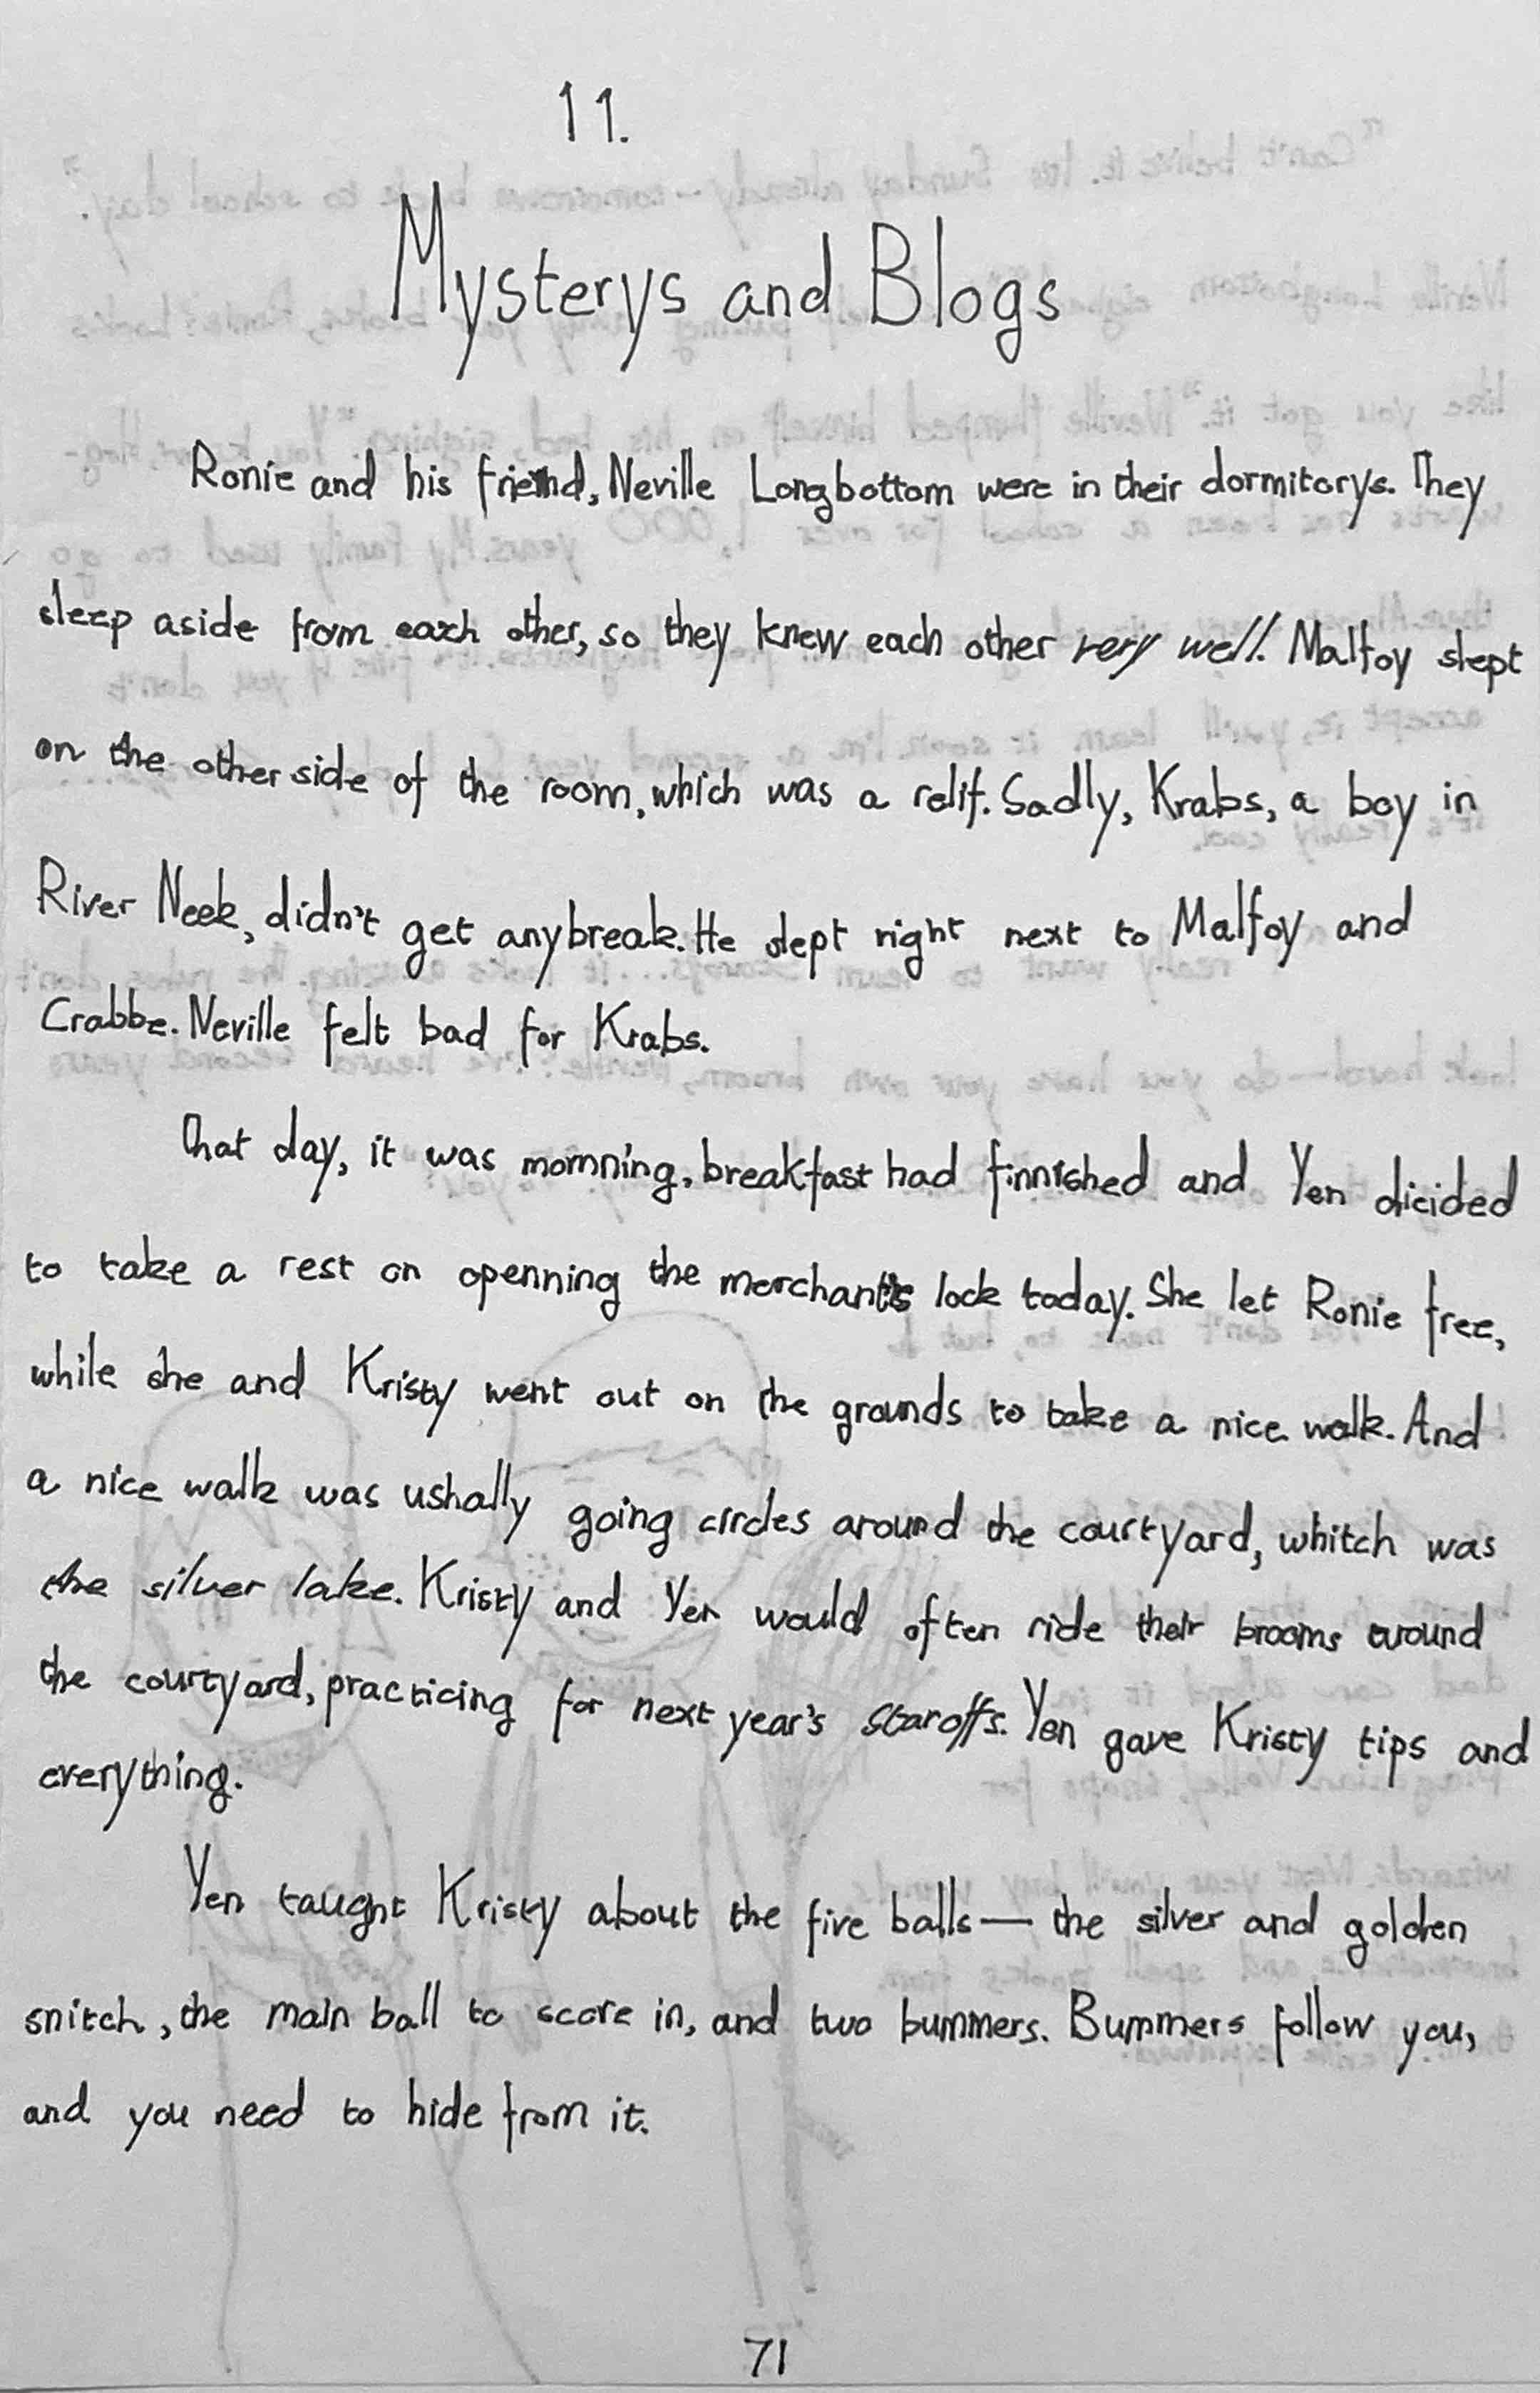 11.
Mysterys and Blogs
Ronie and his friend, Neville Longbottom were in their dormitorys. They
sleep aside from each other, so they knew each other very well. Malfoy slept
on the other side of the room, which was a relif. Sadly, Krabs, a boy in
River Neek, didn't get any break. He slept right next to Malfoy and
Crabbe. Neville felt bad for Krabs.
That day, it was mornning, breakfast had finnished and Yen dicided
to take a rest on openning the merchant's lock today. She let Ronie free,
while she and Kristy went out on the grounds to take a nice walk. And
a nice walk was ushally going circles around the courtyard, whitch was
the silver lake. Kristy and Yen would often ride their brooms around
the courtyard, practicing for next year's staroffs. Yen gave Kristy tips and
everything.
Yen taught Kristy about the five balls — the silver and golden
snitch, the main ball to score in, and two bummers. Bummers follow you,
and you need to hide from it.
71